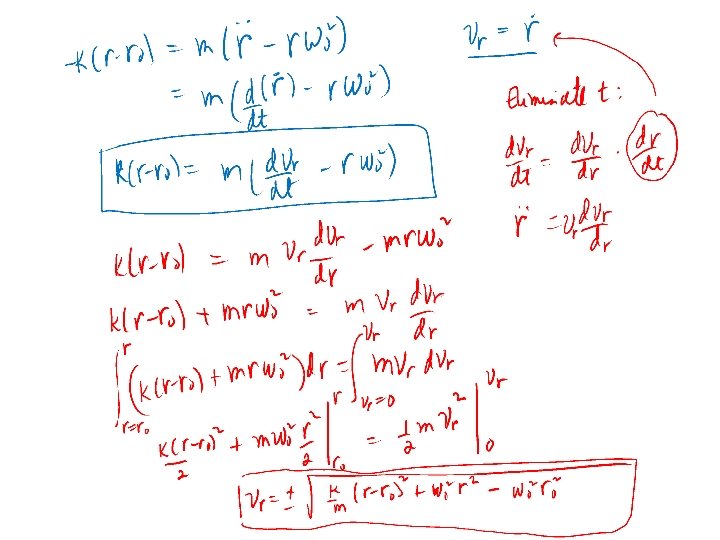 -k(r-r₀) = m(r̈ - rω₀²)
= m(d/dt(ṙ) - rω₀²)
k(r-r₀) = m(dvᵣ/dt - rω₀²)
vᵣ = ṙ
Eliminate t:
dvᵣ/dt = dvᵣ/dr · dr/dt
r̈ = vᵣ dvᵣ/dr
k(r-r₀) = m vᵣ dvᵣ/dr - mrω₀²
k(r-r₀) + mrω₀² = m vᵣ dvᵣ/dr
∫_{r=r₀}^{r} (k(r-r₀) + mrω₀²)dr = ∫_{vᵣ=0}^{vᵣ} mvᵣ dvᵣ
k(r-r₀)²/2 + mω₀² r²/2 |_{r₀}^{r} = 1/2 m vᵣ² |_{0}^{vᵣ}
vᵣ = ± √(k/m (r-r₀)² + ω₀²r² - ω₀²r₀²)